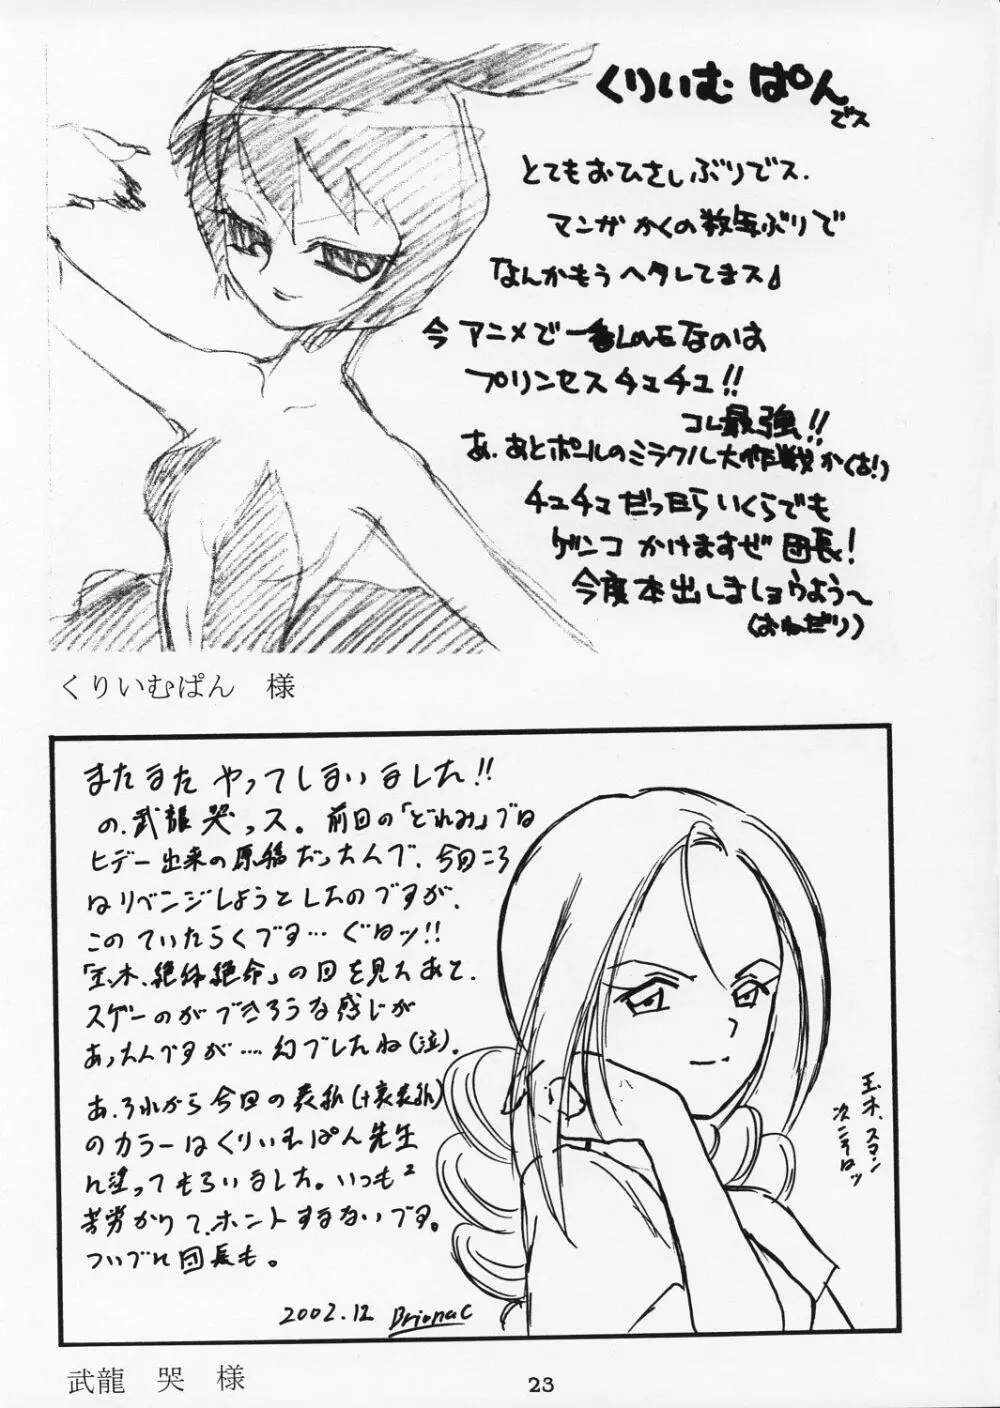 くりいむぱん
でス
とてもおひさしぶりでス.
マンガかくの数年ぶりで
なんかもうヘタレてまス
今アニメで一番LOVEなのは
プリンセスチュチュ!!
コレ最強!!
あ.あとポールのミラクル大作戦か(古!)
チュチュだったらいくらでも
ゲンコかけますぜ団長!
今度本出しましョうよう〜
(おねだり)
くりいむぱん 様
またまたやってしまいました!!
の、武龍哭っス。前回の「どれみ」では
ヒデー出来の原稿だったんで、今回こそ
はリベンジしようとしたのですが、
このていたらくです…ぐはッ!!
「玉木、絶体絶命」の回を見たあと、
スゲーのができそうな感じが
あったんですが…幻でしたね(泣).
あ、それから今回の表紙(+裏表紙)
のカラーはくりいむぱん先生
に塗ってもらいました。いつも²
苦労かけて、ホントすまないです。
ついでに団長も。
2002.12 Brionac
玉木、スマン
次こそはッ
武龍 哭 様
23